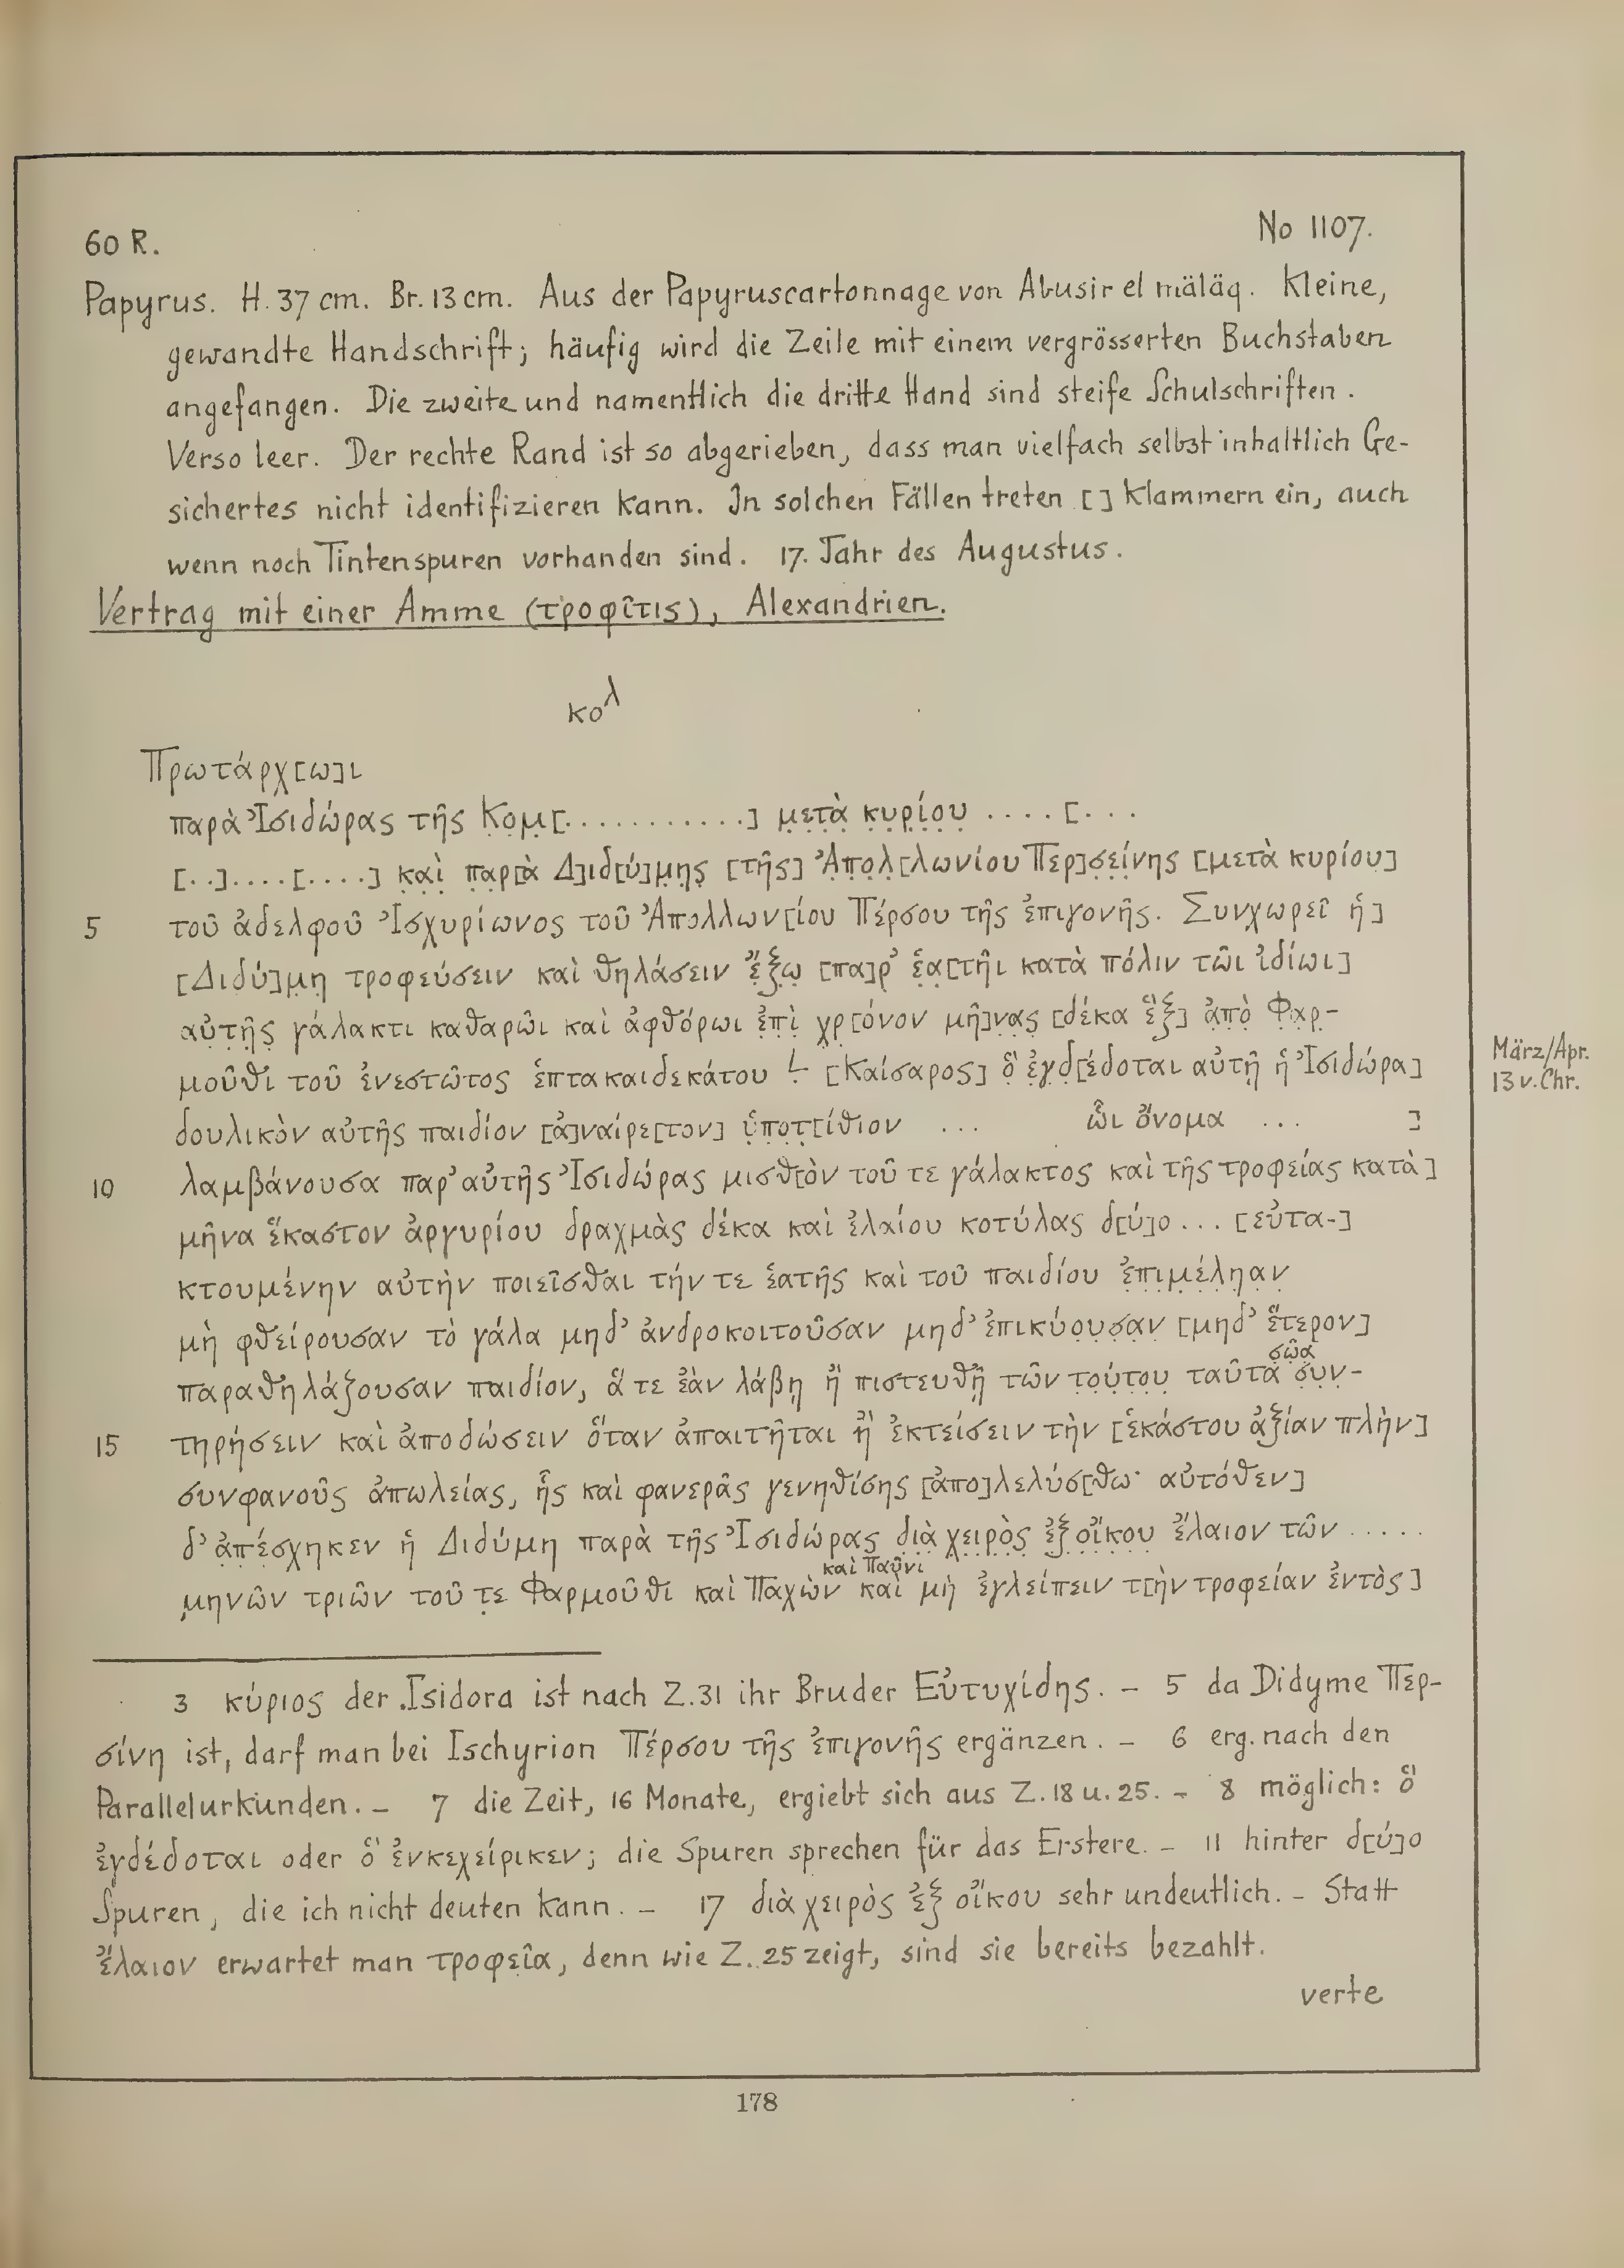 60 R.
No 1107.
Papyrus. H. 37 cm. Br. 13 cm. Aus der Papyruscartonnage von Abusir el mäläq. Kleine,
gewandte Handschrift; häufig wird die Zeile mit einem vergrösserten Buchstaben
angefangen. Die zweite und namentlich die dritte Hand sind steife Schulschriften.
Verso leer. Der rechte Rand ist so abgerieben, dass man vielfach selbst inhaltlich Ge-
sichertes nicht identifizieren kann. In solchen Fällen treten [ ] Klammern ein, auch
wenn noch Tintenspuren vorhanden sind. 17. Jahr des Augustus.
Vertrag mit einer Amme (τροφῖτις), Alexandrien.
κολ
Πρωτάρχ[ω]ι
παρὰ Ἰσιδώρας τῆς Κ̣ο̣μ̣[. . . . . . . . . . . .] μ̣ε̣τ̣ὰ̣ κ̣υ̣ρ̣ί̣ο̣υ̣ . . . . [. . .
[. .] . . . . [. . . .] κ̣α̣ὶ̣ π̣α̣ρ̣[ὰ Δ]ιδ[ύ]μ̣η̣ς̣ [τῆς] Ἀ̣π̣ο̣λ̣[λωνίου Περ]σ̣ε̣ί̣νης [μετὰ κυρίου]
5 τοῦ ἀδελφοῦ Ἰσχυρίωνος τοῦ Ἀπολλων[ίου Πέρσου τῆς ἐπιγονῆς. Συνχωρεῖ ἡ]
[Διδύ]μ̣η̣ τροφεύσειν καὶ θηλάσειν ἔ̣ξ̣ω̣ [πα]ρ̣’ ἑα[τῆι κατὰ πόλιν τῶι ἰδίωι]
α̣ὐ̣τ̣ῆ̣ς̣ γάλακτι καθαρῶι καὶ ἀφθόρωι ἐ̣π̣ὶ̣ χ̣ρ̣[όνον μῆ]ν̣ας [δέκα ἓξ] ἀ̣π̣ὸ̣ Φ̣α̣ρ̣-
μοῦθι τοῦ ἐνεστῶτος ἑπτακαιδεκάτου Ḷ [Καίσαρος] ὃ̣ ἐ̣γ̣δ̣[έδοται αὐτῇ ἡ Ἰσιδώρα]
δουλικὸν αὐτῆς παιδίον [ἀ]ναίρε[τον] ὑ̣π̣ο̣τ̣[ίθιον . . . ὧι ὄνομα . . . ]
10 λαμβάνουσα παρ’ αὐτῆς Ἰσιδώρας μισθ[ὸν τοῦ τε γάλακτος καὶ τῆς τροφείας κατὰ]
μῆνα ἕκαστον ἀργυρίου δραχμὰς δέκα καὶ ἐλαίου κοτύλας δ[ύ]ο . . . [εὐτα-]
κτουμένην αὐτὴν ποιεῖσθαι τήν τε ἑατῆς καὶ τοῦ παιδίου ἐ̣π̣ι̣μ̣έ̣λ̣η̣α̣ν̣
μὴ φθείρουσαν τὸ γάλα μηδ’ ἀνδροκοιτοῦσαν μηδ’ ἐπικύο̣υ̣σ̣α̣ν̣ [μηδ’ ἕτερον]
παραθηλάζουσαν παιδίον, ἅ τε ἐὰν λάβῃ ἢ πιστευθῇ τῶν τ̣ο̣ύ̣τ̣ο̣υ̣ ταῦτα σῶ̣α̣ σ̣υ̣ν̣-
15 τηρήσειν καὶ ἀποδώσειν ὅταν ἀπαιτῆται ἢ ἐκτείσειν τὴν [ἑκάστου ἀξίαν πλὴν]
συνφανοῦς ἀπωλείας, ἧς καὶ φανερᾶς γενηθίσης [ἀπο]λελύσ[θω· αὐτόθεν]
δ’ ἀπέσχηκεν ἡ Διδύμη παρὰ τῆς Ἰσιδώρας δ̣ι̣ὰ̣ χ̣ε̣ι̣ρ̣ὸ̣ς̣ ἐ̣ξ̣ ο̣ἴ̣κ̣ο̣υ̣ ἔλαιον τῶν . . . . .
μηνῶν τριῶν τοῦ τ̣ε Φαρμοῦθι καὶ Παχὼν καὶ Παῦνι καὶ μὴ ἐγλείπειν τ[ὴν τροφείαν ἐντὸς]
März/Apr.
13 v. Chr.
3 κύριος der Isidora ist nach Z. 31 ihr Bruder Εὐτυχίδης. – 5 da Didyme Περ-
σίνη ist, darf man bei Ischyrion Πέρσου τῆς ἐπιγονῆς ergänzen. – 6 erg. nach den
Parallelurkunden. – 7 die Zeit, 16 Monate, ergiebt sich aus Z. 18 u. 25. – 8 möglich: ὃ
ἐγδέδοται oder ὃ ἐνκεχείρικεν; die Spuren sprechen für das Erstere. – 11 hinter δ[ύ]ο
Spuren, die ich nicht deuten kann. – 17 διὰ χειρὸς ἐξ οἴκου sehr undeutlich. – Statt
ἔλαιον erwartet man τροφεῖα, denn wie Z. 25 zeigt, sind sie bereits bezahlt.
verte
178